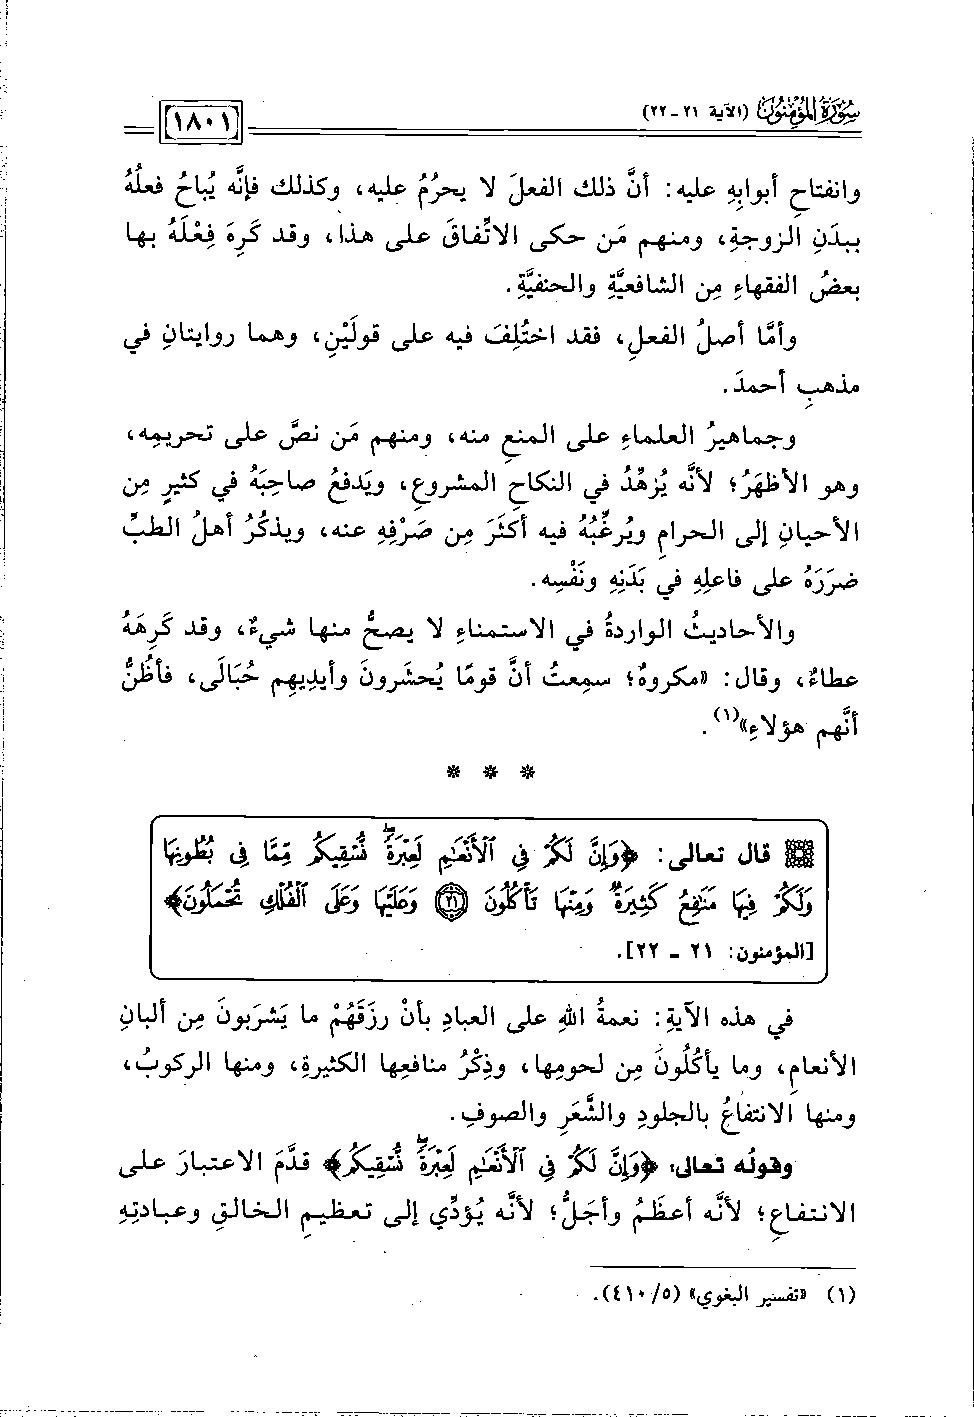 سُورَةُ المُؤْمِنُونَ (الآية ٢١ - ٢٢)
١٨٠١
وانفتاحِ أبوابِهِ عليه: أنَّ ذلك الفعلَ لا يحرُمُ عليه، وكذلك فإنَّه يُباحُ فعلُهُ
ببدَنِ الزوجةِ، ومنهم مَن حكى الاتِّفاقَ على هذا، وقد كَرِهَ فِعْلَهُ بها
بعضُ الفقهاءِ مِن الشافعيَّةِ والحنفيَّةِ.
وأمَّا أصلُ الفعلِ، فقد اختُلِفَ فيه على قولَيْنِ، وهما روايتانِ في
مذهبِ أحمدَ.
وجماهيرُ العلماءِ على المنعِ منه، ومنهم مَن نصَّ على تحريمِه،
وهو الأظهَرُ؛ لأنَّه يُزهِّدُ في النكاحِ المشروعِ، ويَدفعُ صاحِبَهُ في كثيرٍ مِن
الأحيانِ إلى الحرامِ ويُرغِّبُهُ فيه أكثَرَ مِن صَرْفِهِ عنه، ويذكُرُ أهلُ الطبِّ
ضرَرَهُ على فاعلِهِ في بَدَنِهِ ونَفْسِه.
والأحاديثُ الواردةُ في الاستمناءِ لا يصحُّ منها شيءٌ، وقد كَرِهَهُ
عطاءٌ، وقال: «مكروهٌ؛ سمِعتُ أنَّ قومًا يُحشَرونَ وأيدِيهِم حُبَالَى، فأظُنُّ
أنَّهم هؤلاءِ»(١).
* * *
قال تعالى: ﴿وَإِنَّ لَكُمْ فِي ٱلْأَنْعَٰمِ لَعِبْرَةً ۖ نُّسْقِيكُم مِّمَّا فِي بُطُونِهَا
وَلَكُمْ فِيهَا مَنَٰفِعُ كَثِيرَةٌ وَمِنْهَا تَأْكُلُونَ ٢١ وَعَلَيْهَا وَعَلَى ٱلْفُلْكِ تُحْمَلُونَ﴾
[المؤمنون: ٢١ - ٢٢].
في هذه الآيةِ: نعمةُ اللهِ على العبادِ بأنْ رزَقَهُمْ ما يَشرَبونَ مِن ألبانِ
الأنعامِ، وما يأكُلُونَ مِن لحومِها، وذِكْرُ منافعِها الكثيرةِ، ومنها الركوبُ،
ومنها الانتفاعُ بالجلودِ والشَّعَرِ والصوفِ.
وقولُه تعالى: ﴿وَإِنَّ لَكُمْ فِي ٱلْأَنْعَٰمِ لَعِبْرَةً ۖ نُّسْقِيكُم﴾ قدَّمَ الاعتبارَ على
الانتفاعِ؛ لأنَّه أعظَمُ وأجَلُّ؛ لأنَّه يُؤدِّي إلى تعظيمِ الخالقِ وعبادتِهِ
(١) «تفسير البغوي» (٤١٠/٥).